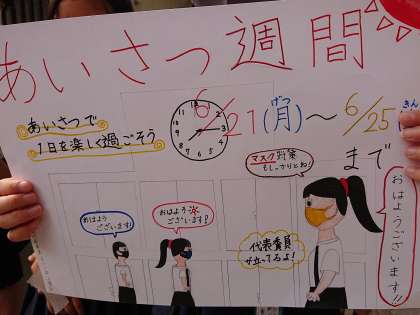 あいさつ週間
6/21(月)～6/25(金)
げつ
きん
まで
あいさつで
1日を楽しく過ごそう
マスク対策
もしっかりとね!
おはよう
ございます!
おはよう
ございます!
代表委員
が立ってるよ!
おはようございます!!